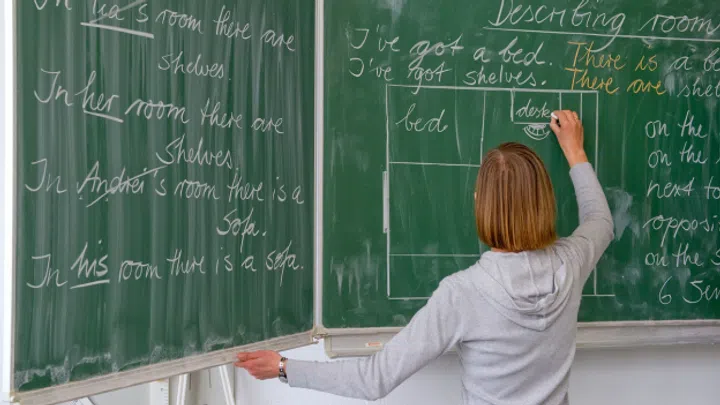 In Lia's room there are
shelves.
In her room there are
Shelves.
In Andrei's room there is a
Sofa.
In his room there is a sofa.
Describing room
I've got a bed. There is a be
I've got shelves. There are shel
bed
desk
on the
on the
next to
opposi
on the s
6 Sen